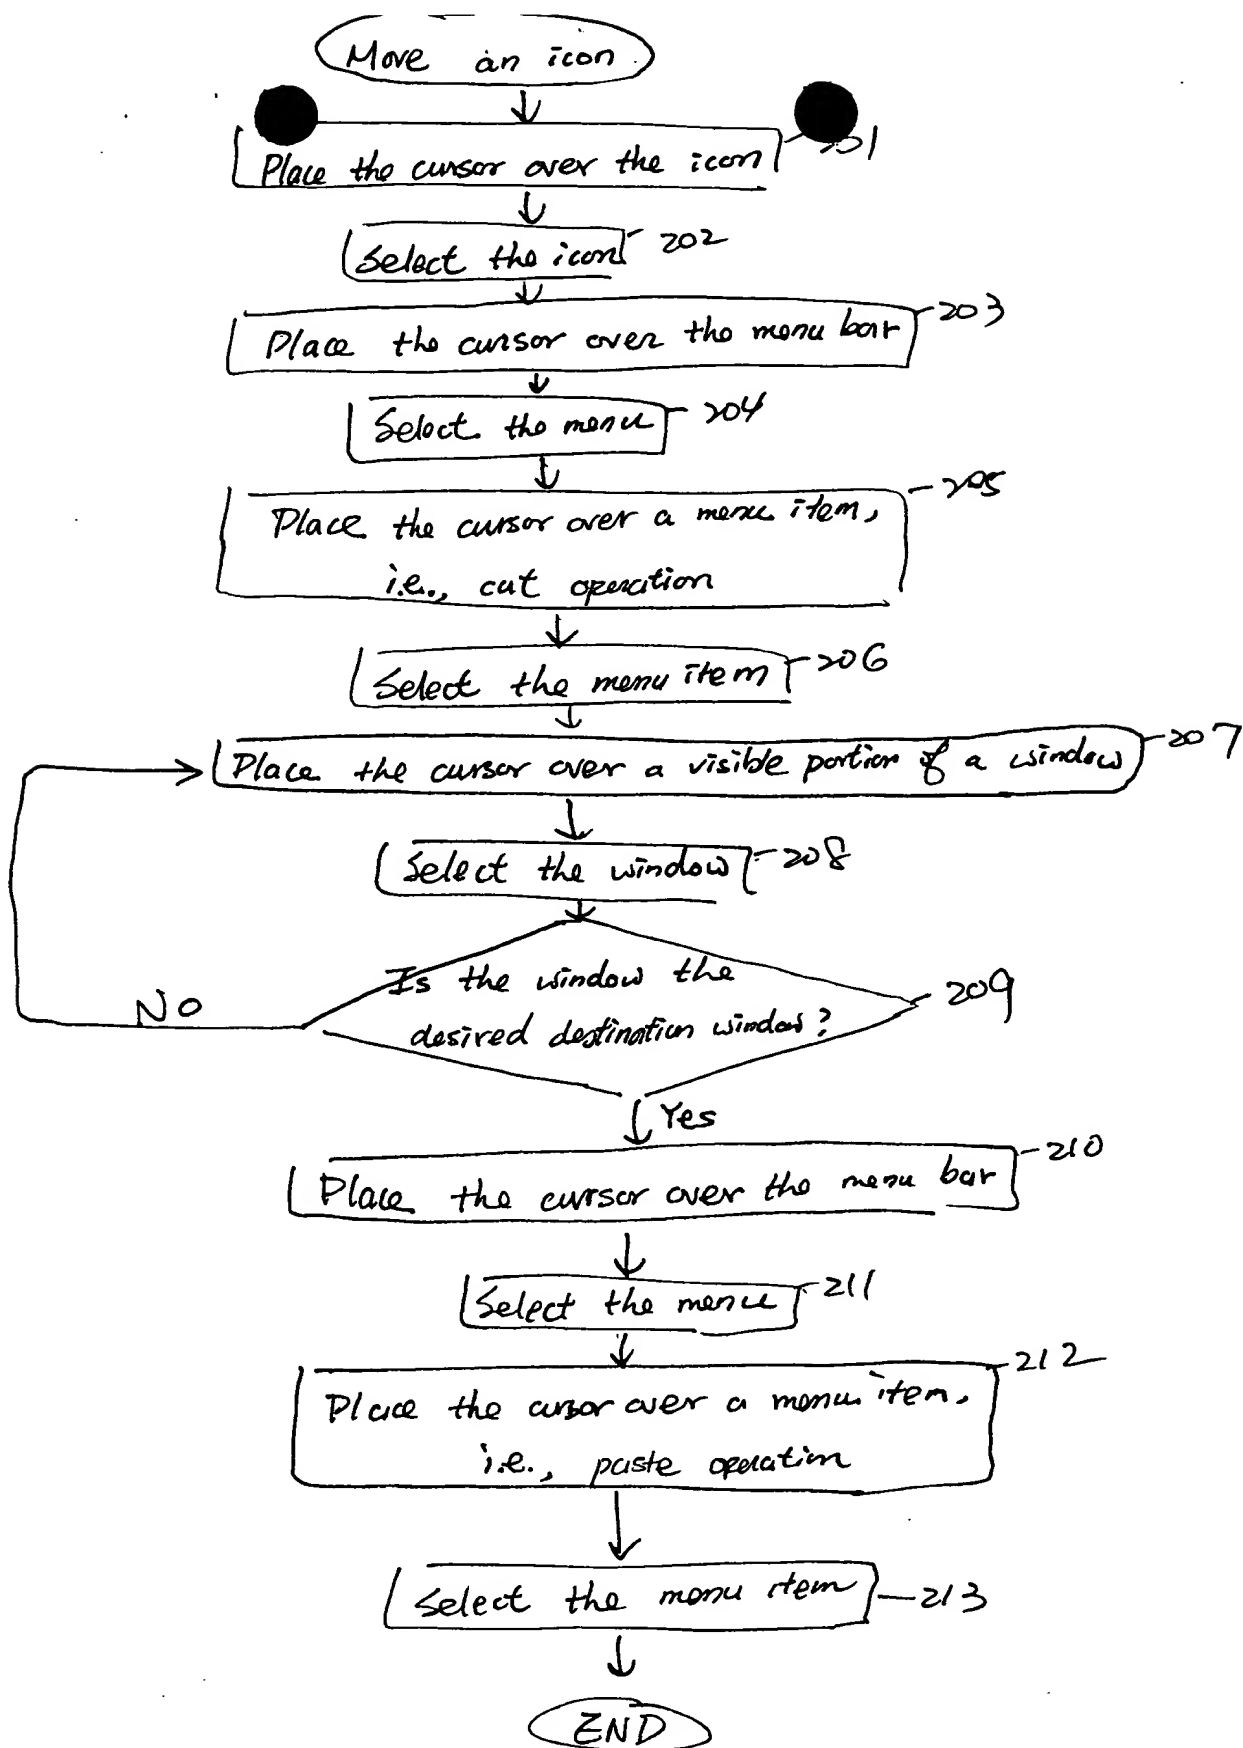 Move an icon
Place the cursor over the icon 201
Select the icon 202
Place the cursor over the menu bar 203
Select the menu 204
Place the cursor over a menu item, 205
i.e., cut operation
Select the menu item 206
Place the cursor over a visible portion of a window 207
Select the window 208
Is the window the
desired destination window? 209
No
Yes
Place the cursor over the menu bar 210
Select the menu 211
Place the cursor over a menu item, 212
i.e., paste operation
Select the menu item 213
END